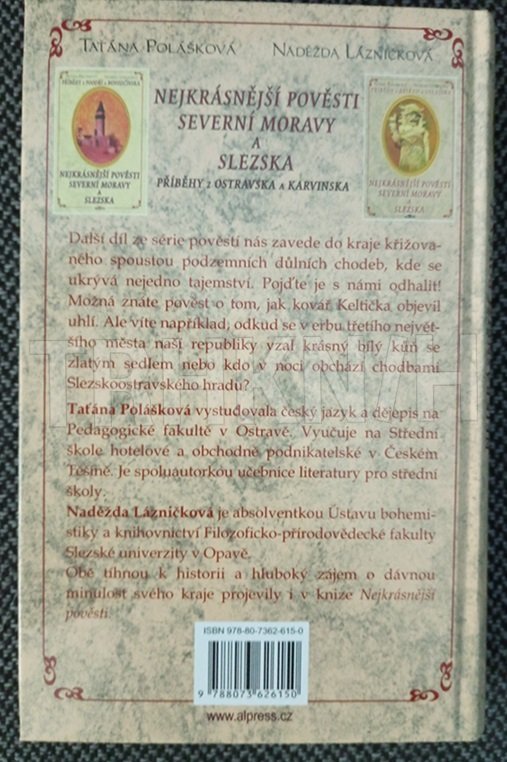 Taťána Polášková Naděžda Lázníčková
NEJKRÁSNĚJŠÍ POVĚSTI
SEVERNÍ MORAVY
A
SLEZSKA
PŘÍBĚHY Z OSTRAVSKA A KARVINSKA
NEJKRÁSNĚJŠÍ POVĚSTI
SEVERNÍ MORAVY
A
SLEZSKA
NEJKRÁSNĚJŠÍ POVĚSTI
SEVERNÍ MORAVY
A
SLEZSKA
Další díl ze série pověstí nás zavede do kraje křižova-
ného spoustou podzemních důlních chodeb, kde se
ukrývá nejedno tajemství. Pojďte je s námi odhalit!
Možná znáte pověst o tom, jak kovář Keltička objevil
uhlí. Ale víte například, odkud se v erbu třetího největ-
šího města naší republiky vzal krásný bílý kůň se
zlatým sedlem nebo kdo v noci obchází chodbami
Slezskoostravského hradu?
Taťána Polášková vystudovala český jazyk a dějepis na
Pedagogické fakultě v Ostravě. Vyučuje na Střední
škole hotelové a obchodně podnikatelské v Českém
Těšíně. Je spoluautorkou učebnice literatury pro střední
školy.
Naděžda Lázníčková je absolventkou Ústavu bohemi-
stiky a knihovnictví Filozoficko-přírodovědecké fakulty
Slezské univerzity v Opavě.
Obě tíhnou k historii a hluboký zájem o dávnou
minulost svého kraje projevily i v knize Nejkrásnější
pověsti.
ISBN 978-80-7362-615-0
9 788073 626150
www.alpress.cz